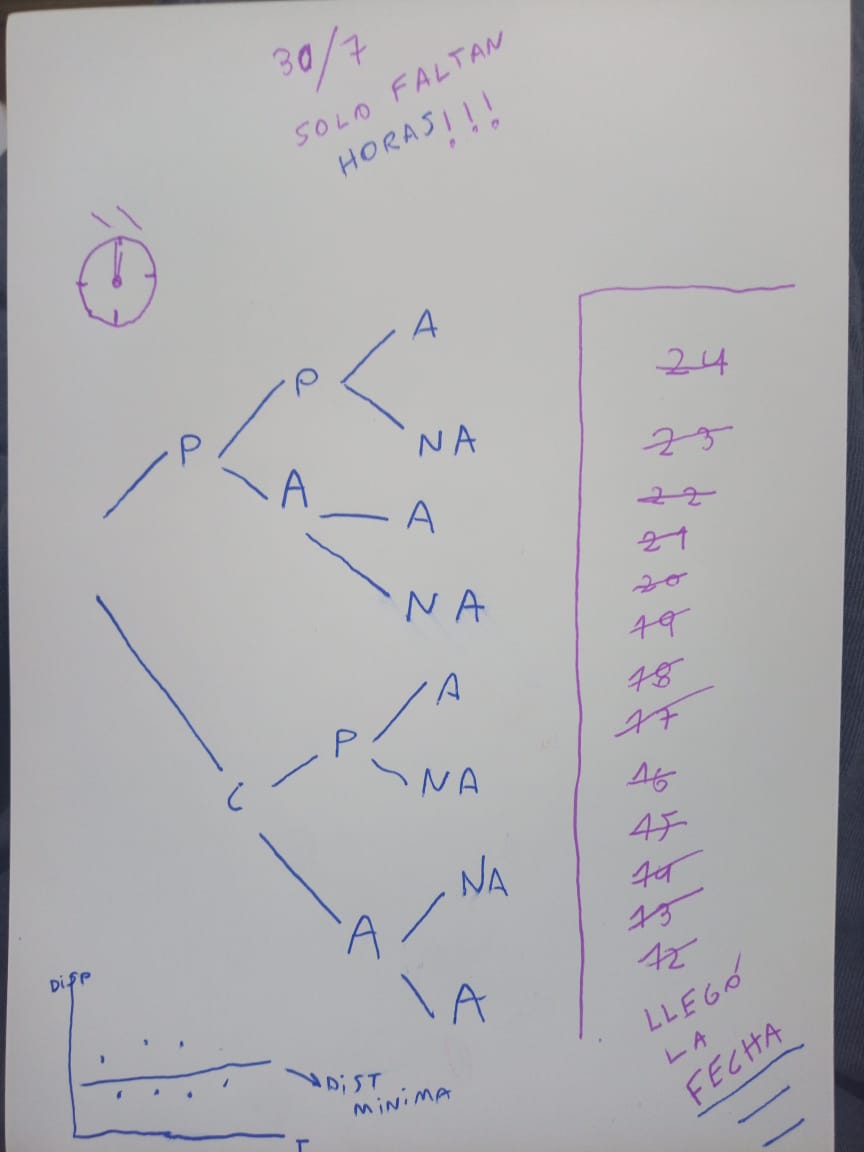 30/7
SOLO FALTAN
HORAS!!!
A
P
NA
P
A
A
NA
A
P
NA
C
NA
A
A
24
23
22
21
20
19
18
17
16
15
14
13
12
LLEGÓ
LA
FECHA
DISP
DIST
MINIMA
T